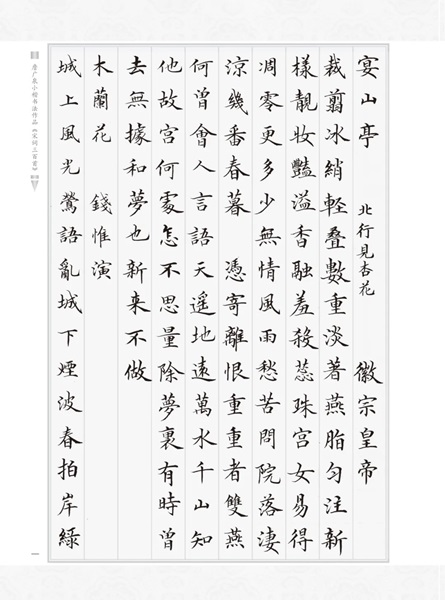 宴山亭 北行見杏花 徽宗皇帝
裁翦冰綃軽叠數重淡著燕脂匀注新
樣靚妝豔溢香融羞殺蕊珠宮女易得
凋零更多少無情風雨愁苦問院落淒
涼幾番春暮 憑寄離恨重重者雙燕
何曾會人言語天遥地遠萬水千山知
他故宮何處怎不思量除夢裏有時曾
去無據和夢也新来不做
木蘭花 錢惟演
城上風光鶯語亂城下煙波春拍岸緑
小楷书法作品《宋词三百首》
一